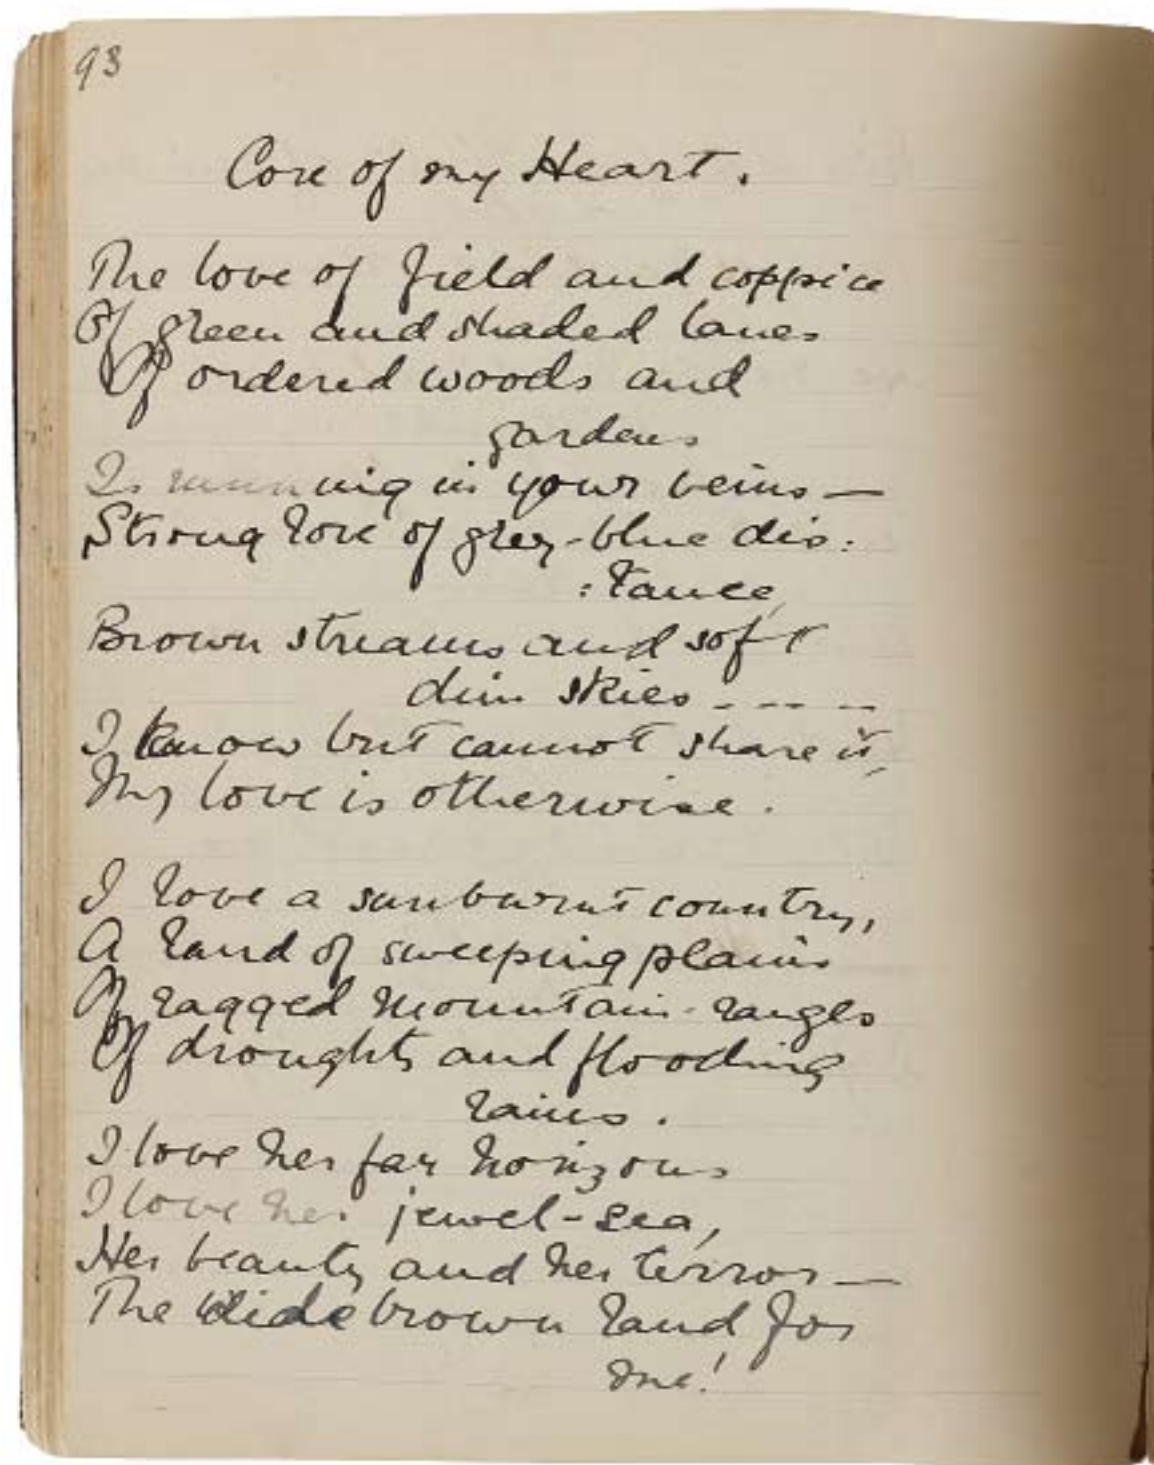 93
Core of my Heart.
The love of field and coppice
Of green and shaded lanes
Of ordered woods and
gardens
Is running in your veins —
Strong love of grey-blue dis:
:tance,
Brown streams and soft
dim skies - - - -
I know but cannot share it,
My love is otherwise.
I love a sunburnt country,
A land of sweeping plains
Of ragged mountain-ranges
Of droughts and flooding
rains.
I love her far horizons
I love her jewel-sea,
Her beauty and her terror —
The wide brown land for
me!